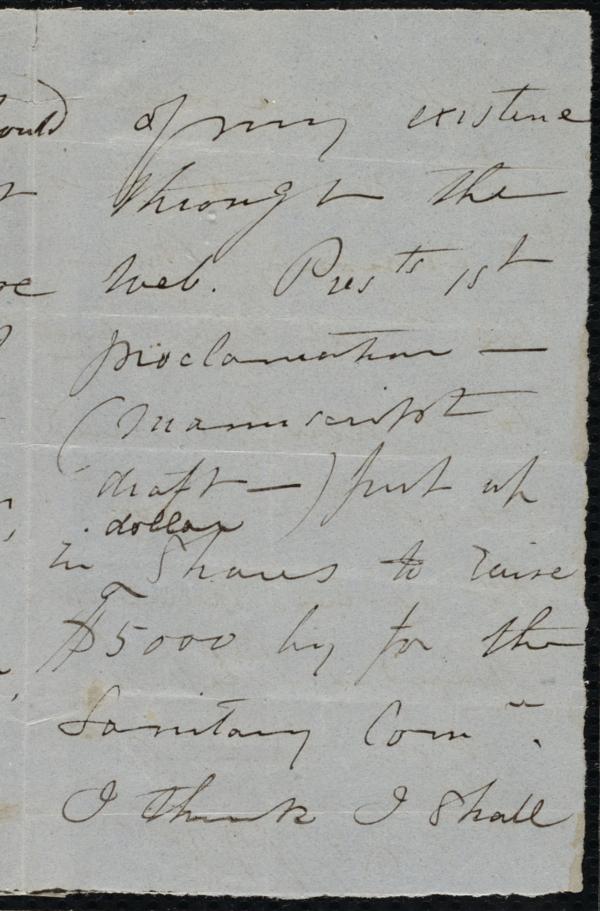 of my existene
through the
web. Pres^ts 1st
proclamation —
(manuscript
draft —) put up
dollar
in Shares to raise
$5000 by for the
Sanitary Com^n.
I think I shall